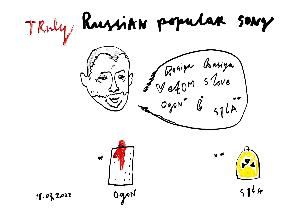 TRuly RussiAN populAR soNg
Rossiya Rossiya
v etom slove
ogon* i
sila**
* **
ogoN sila